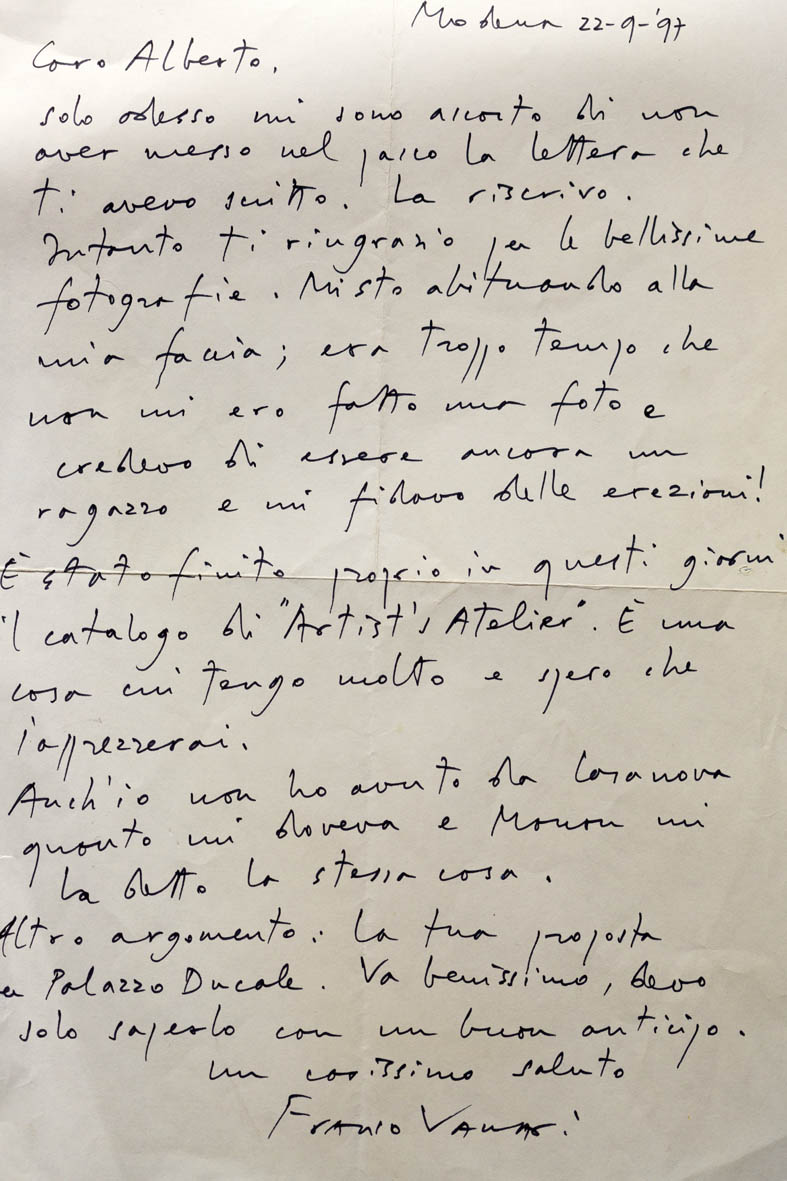 Modena 22-9-'97
Caro Alberto,
solo adesso mi sono accorto di non
aver messo nel pacco la lettera che
ti avevo scritto. La riscrivo.
Intanto ti ringrazio per le bellissime
fotografie. Mi sto abituando alla
mia faccia; era troppo tempo che
non mi ero fatto una foto e
credevo di essere ancora un
ragazzo e mi fidavo delle erezioni!
È stato finito proprio in questi giorni
il catalogo di "Artist's Atelier". È una
cosa cui tengo molto e spero che
l'apprezzerai.
Anch'io non ho avuto da Casanova
quanto mi doveva e Monon mi
ha detto la stessa cosa.
Altro argomento: la tua proposta
a Palazzo Ducale. Va benissimo, devo
solo saperlo con un buon anticipo.
un carissimo saluto
Franco Vaccari